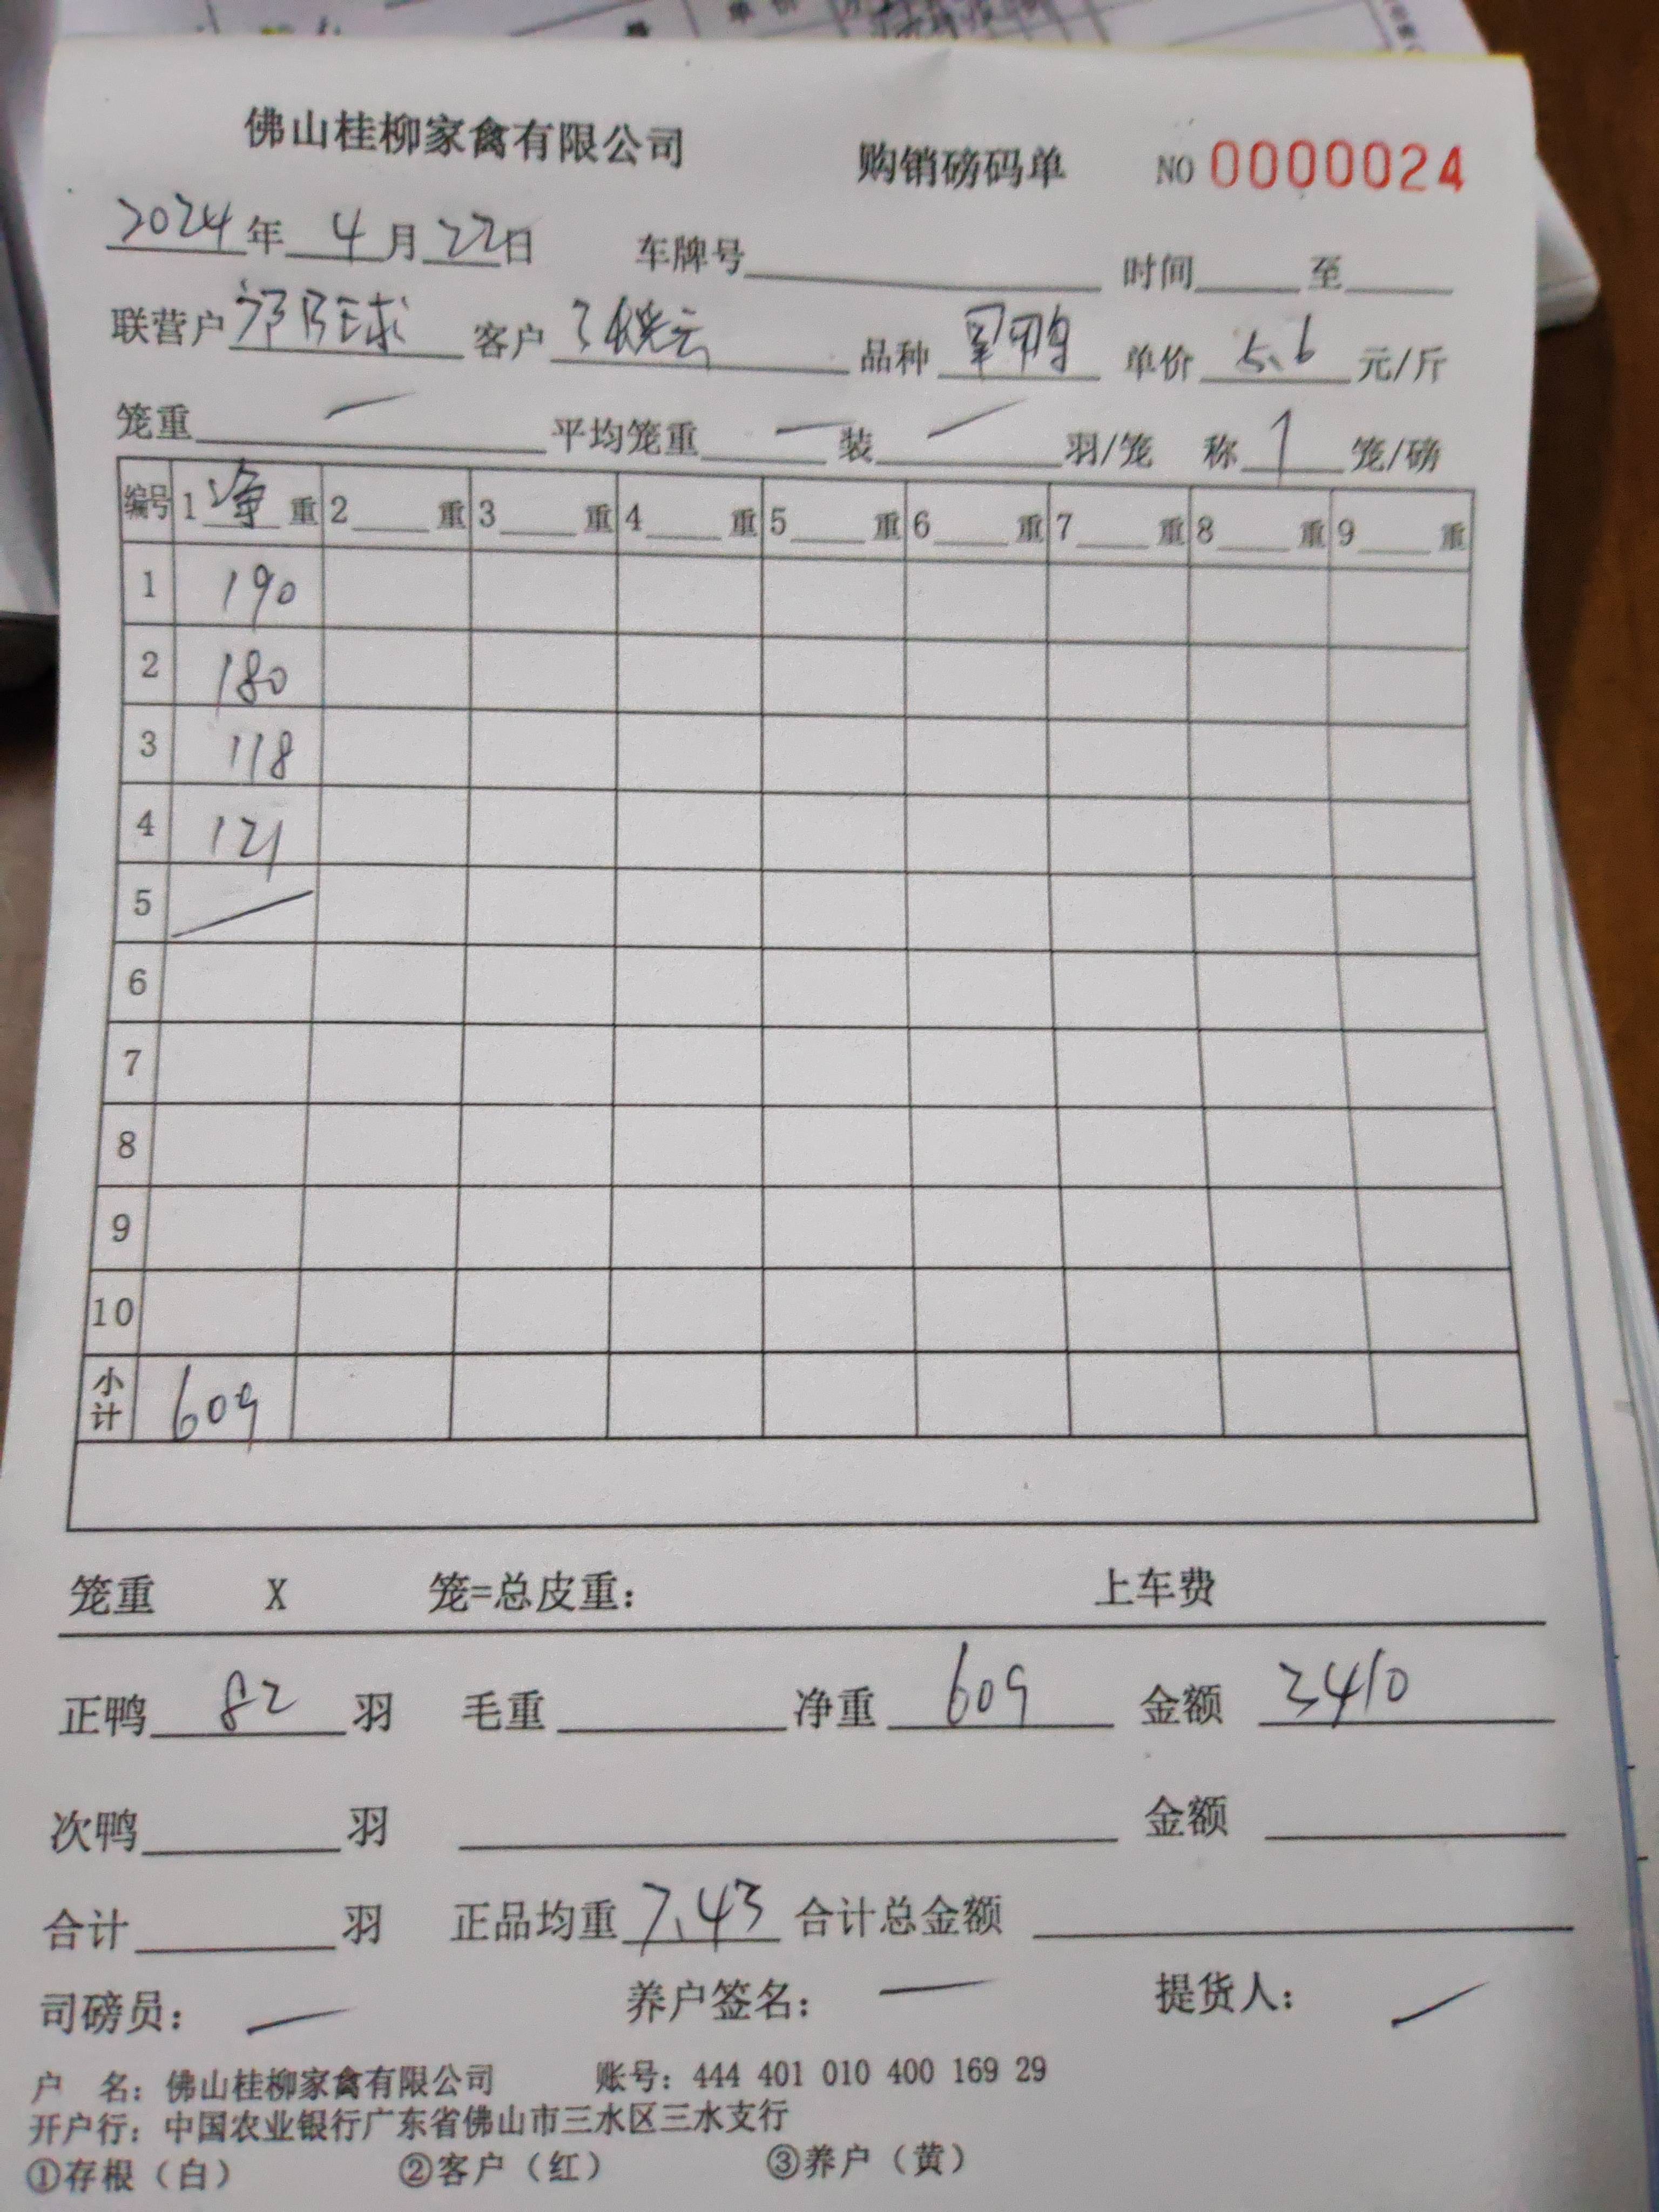 佛山桂柳家禽有限公司 购销磅码单 NO 0000024
2024年 4月 22日 车牌号 时间 至
联营户 客户 品种 单价 5.6 元/斤
笼重 — 平均笼重 — 装 — 羽/笼 称 1 笼/磅
编号 1 净 重 2 重 3 重 4 重 5 重 6 重 7 重 8 重 9 重
1 190
2 180
3 118
4 121
5
6
7
8
9
10
小计 609
笼重 X 笼=总皮重: 上车费
正鸭 82 羽 毛重 净重 609 金额 3410
次鸭 羽 金额
合计 羽 正品均重 7.43 合计总金额
司磅员: — 养户签名: — 提货人: —
户 名: 佛山桂柳家禽有限公司 账号: 444 401 010 400 169 29
开户行: 中国农业银行广东省佛山市三水区三水支行
①存根(白) ②客户(红) ③养户(黄)